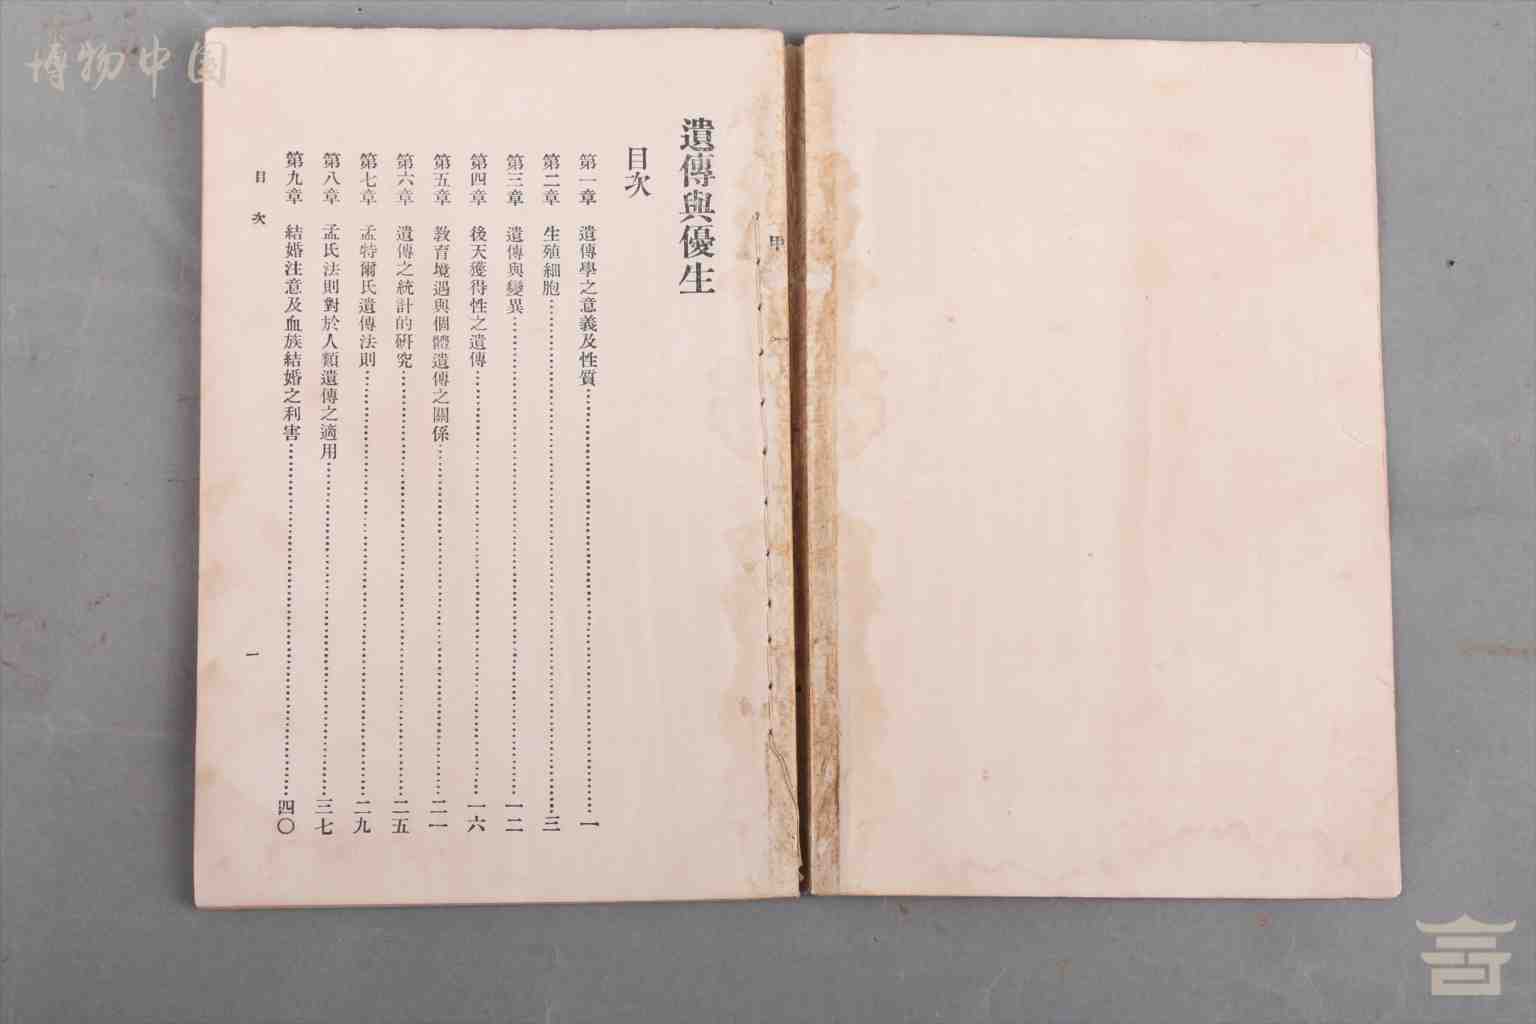 博物中国
遺傳與優生
目次
第一章 遺傳學之意義及性質…………一
第二章 生殖細胞…………三
第三章 遺傳與變異…………一二
第四章 後天獲得性之遺傳…………一六
第五章 教育境遇與個體遺傳之關係…………二一
第六章 遺傳之統計的研究…………二五
第七章 孟特爾氏遺傳法則…………二九
第八章 孟氏法則對於人類遺傳之適用…………三七
第九章 結婚注意及血族結婚之利害…………四〇
目次 一